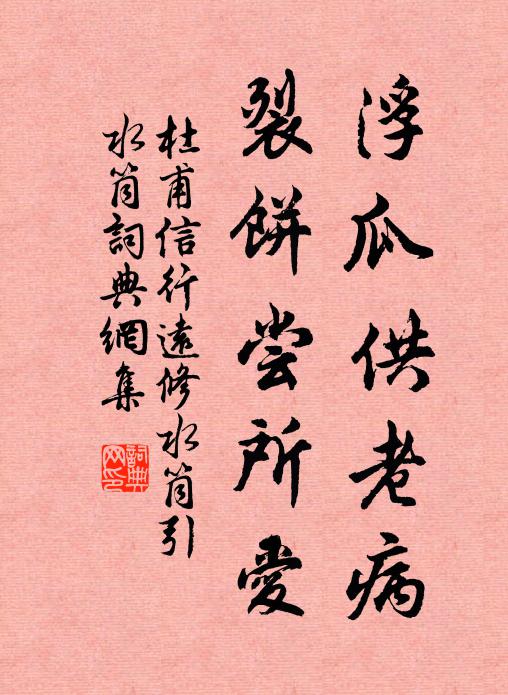 浮瓜供老病
裂餅尝所愛
杜甫信行遠修水筒引
水筒詞典網集
詞典网印